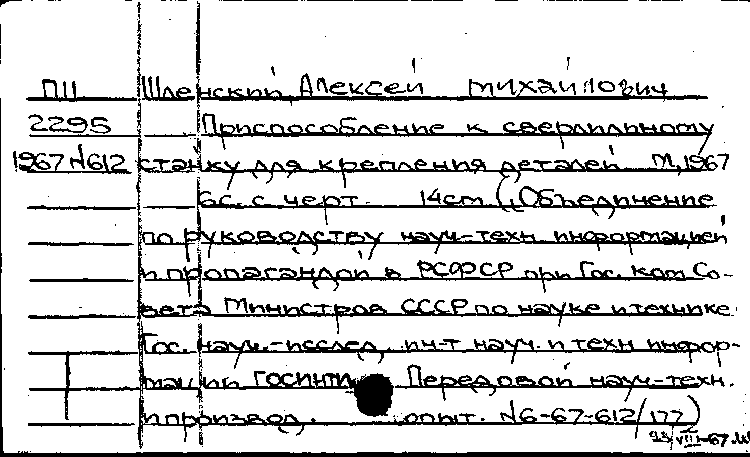 ПШ Шленский, Алексей Михайлович
2295 Приспособление к сверлильному
1967 N612 станку для крепления деталей М, 1967
6с. с черт. 14см („Объединение
по руководству науч-техн. информацией
и пропагандой в РСФСР при Гос. ком Со-
вета Министров СССР по науке и технике.
Гос. науч.-исслед. ин-т науч. и техн инфор-
мации ГОСИНТИ Передовой науч-техн.
и производ. опыт. N6-67-612/177)
23/VIII-67.